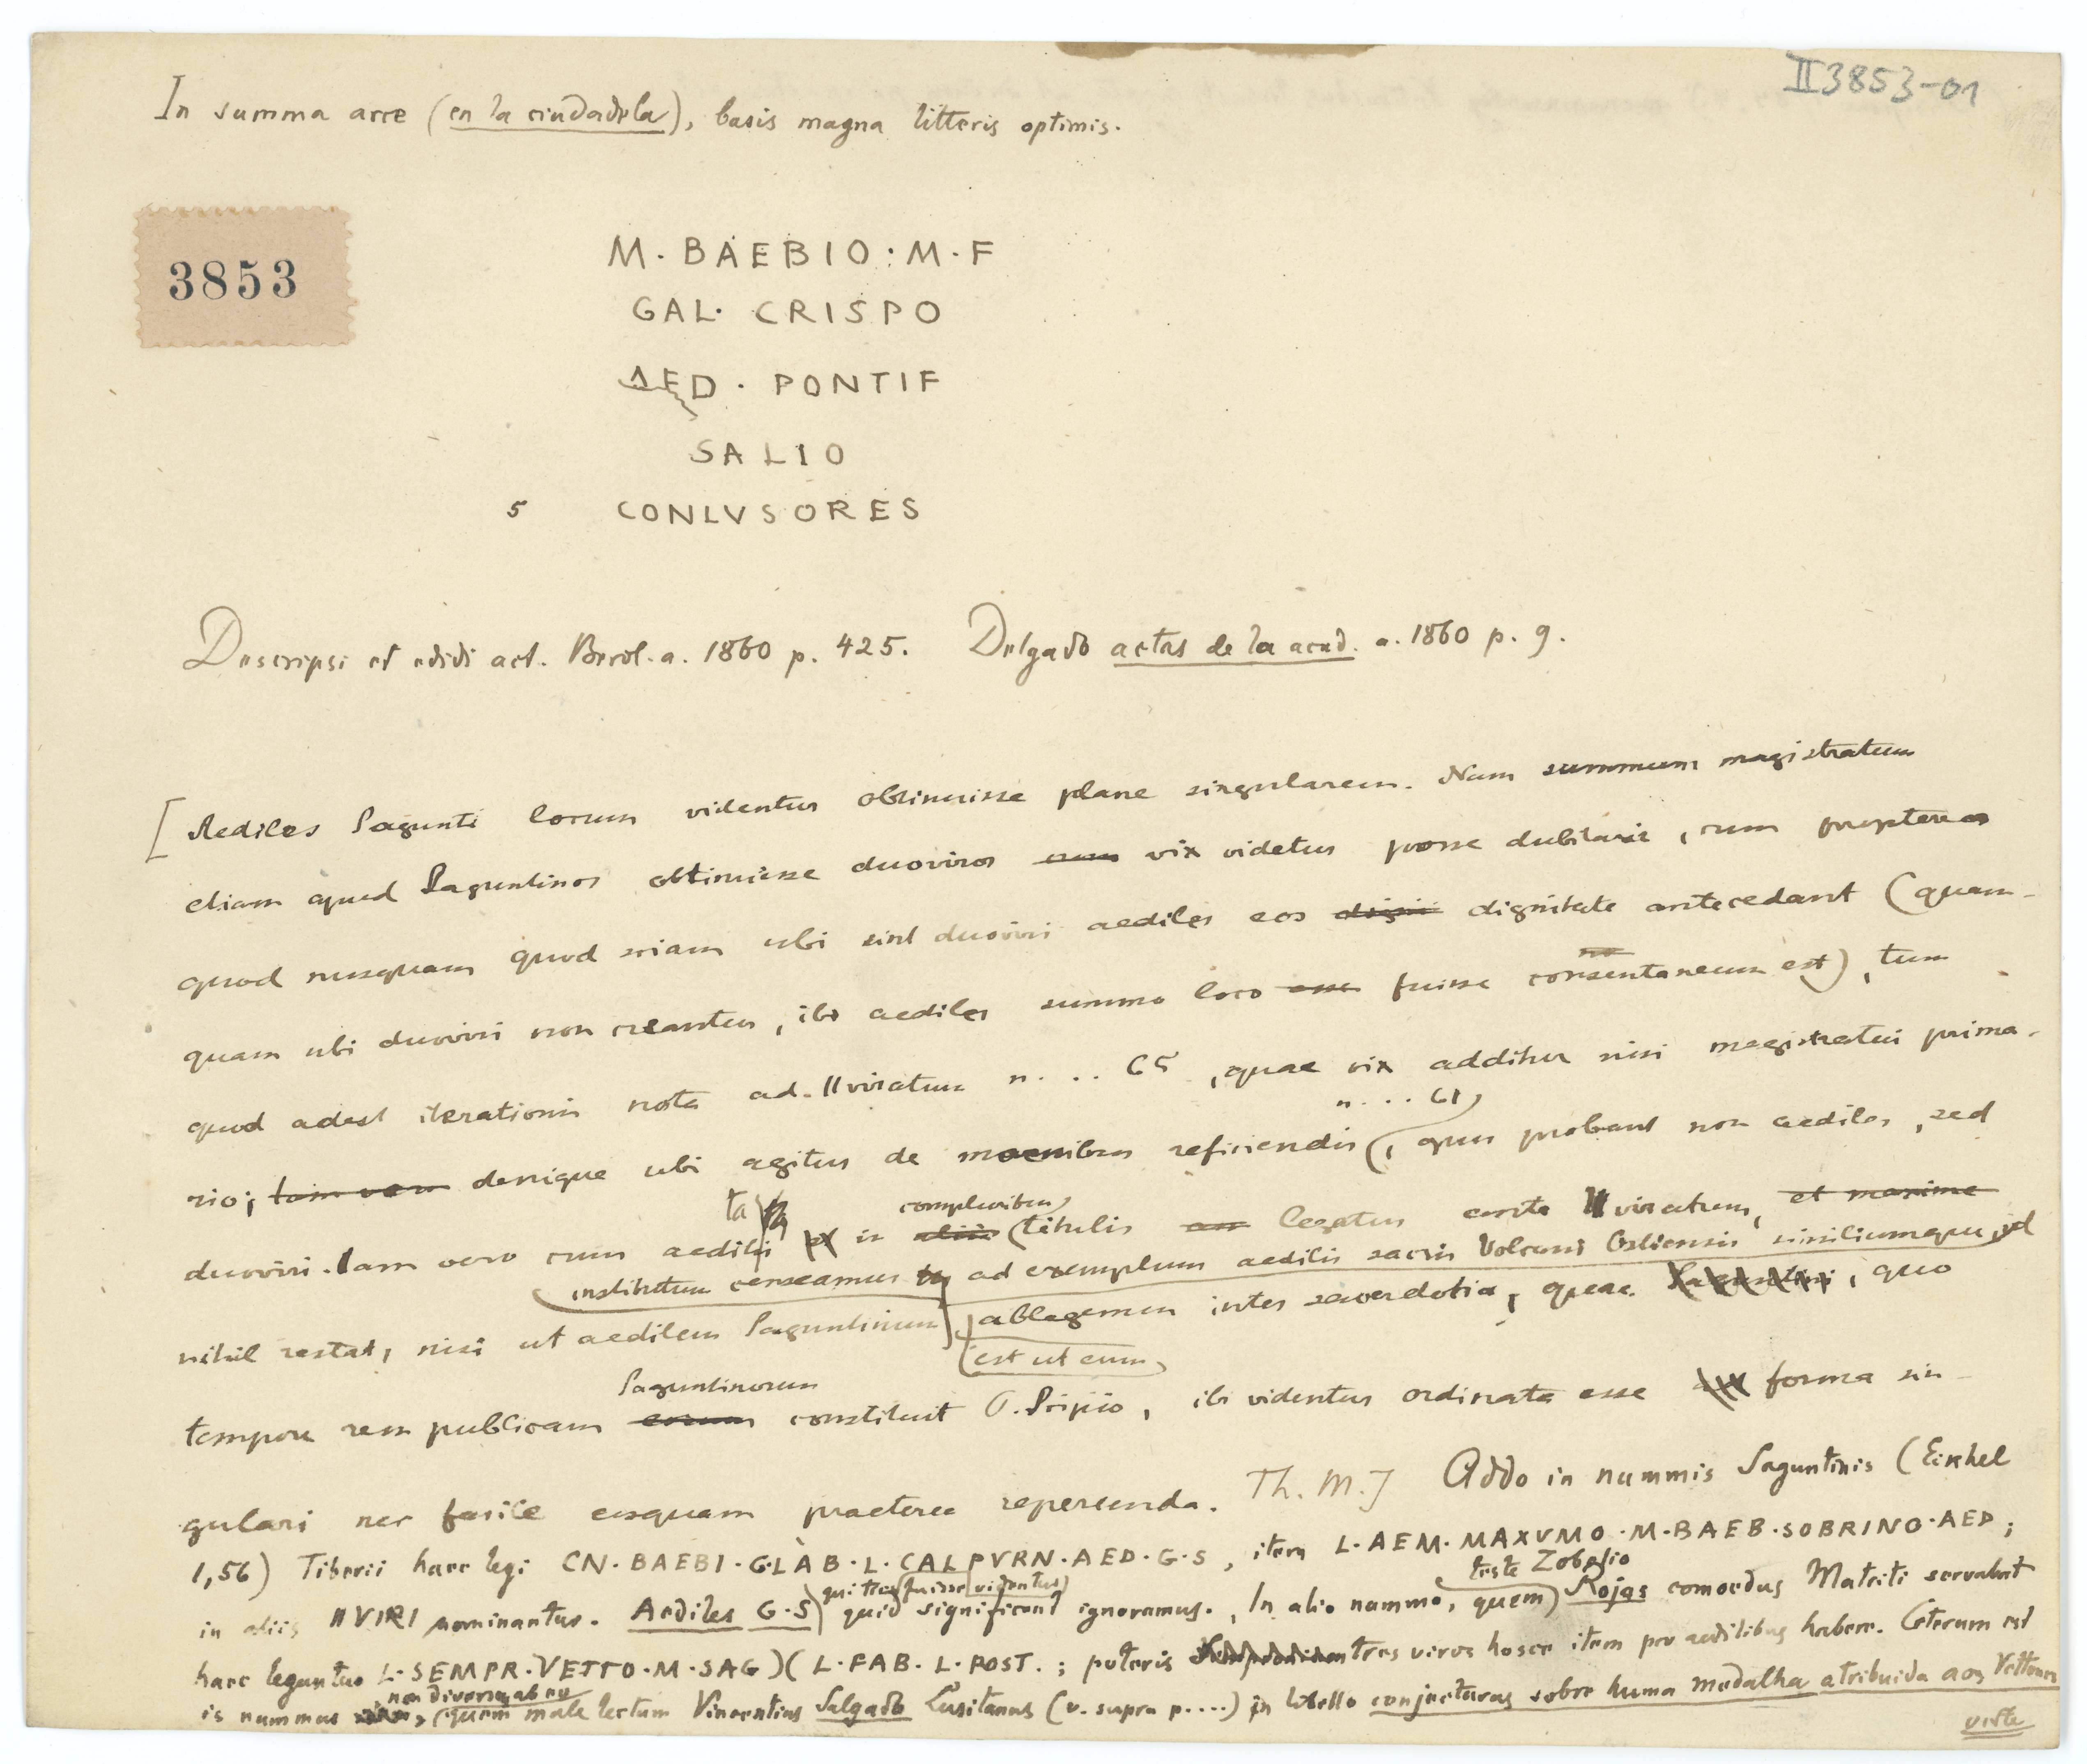 II 3853-01
In summa arce (en la ciudadela), basis magna litteris optimis.
3853
M · BAEBIO · M · F
GAL · CRISPO
AED · PONTIF
SALIO
5 CONLVSORES
Descripsi et edidi act. Berol. a. 1860 p. 425. Delgado actas de la acad. a. 1860 p. 9.
[Aediles Sagunti locum videntur obtinuisse plane singularem. Nam summum magistratum
etiam apud Saguntinos obtinuisse duoviros vix videtur posse dubitari, cum propterea
quod nusquam quod sciam ubi sint duoviri aediles eos dignitate antecedant (quam-
quam ubi duoviri non creantur, ibi aediles summo loco esse fuisse consentaneum est), tum
quod adest iterationis nota ad IIviratum n. . . 65, quae vix additur nisi magistratui prima-
rio; tum vero denique ubi agitur de moenibus reficiendis (n. . . 61), quis probant non aediles, sed
duoviri. Iam vero cum aedilitas in compluribus titulis legatur ante IIviratum, et maxime
institutum censeamus ad exemplum aedilis sacris Volcani Ostiensis similiumque, id
nihil restat, nisi ut aedilem Saguntinum ablegemus inter sacerdotia, quae Saguntini, quo
est ut eum
Saguntinorum
tempore rem publicam eorum constituit P. Scipio, ibi videntur ordinata esse forma sin-
gulari nec facile cuiquam praeterea reperiunda. Th. M.] Addo in nummis Saguntinis (Eckhel
1,56) Tiberii haec legi CN · BAEBI · GLAB · L · CALPVRN · AED · G · S, item L · AEM · MAXVMO · M · BAEB · SOBRINO · AED;
in aliis IIVIRI nominantur. Aediles G · S qui tres fuisse videntur quid significent ignoramus. In alio nummo, quem teste Zobelio Rojas comoedus Matriti servabat
haec leguntur L · SEMPR · VETTO · M · SAG )( L · FAB · L · POST. ; poteris tres viros hosce item pro aedilibus habere. Ceterum est
is nummus non diversus ab eo quem male lectum Vincentius Salgado Lusitanus (v. supra p....) in libello conjecturas sobre huma medalha atribuida aos Vettones
verte